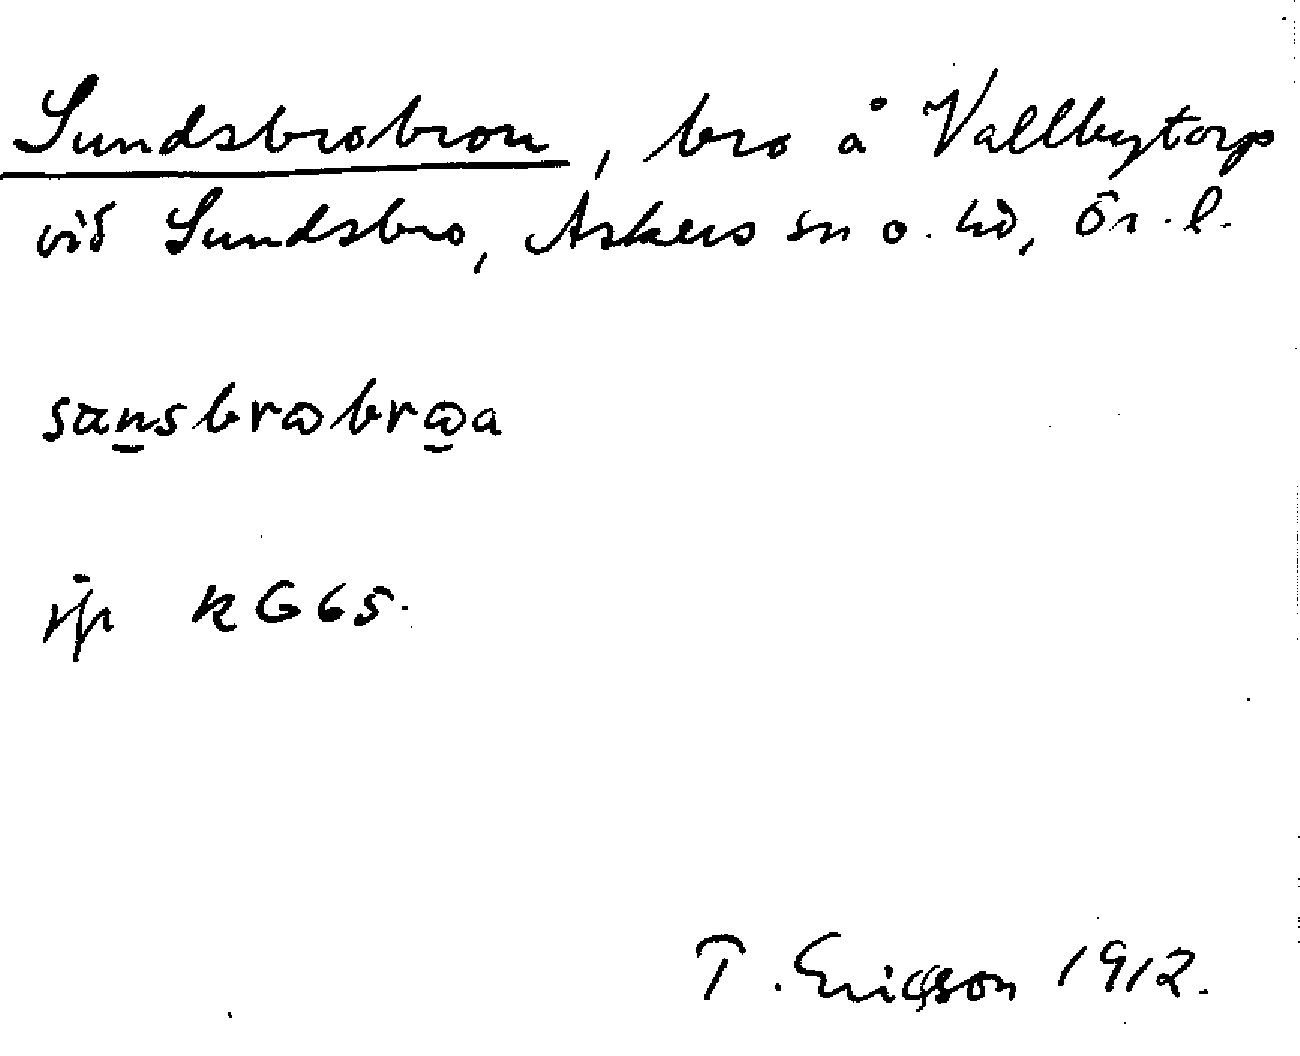 Sundsbrobron, bro å Vallbytorp
vid Sundsbro, Askers sn o. hd, Ör. l.
kG65.
T. Ericsson 1912.